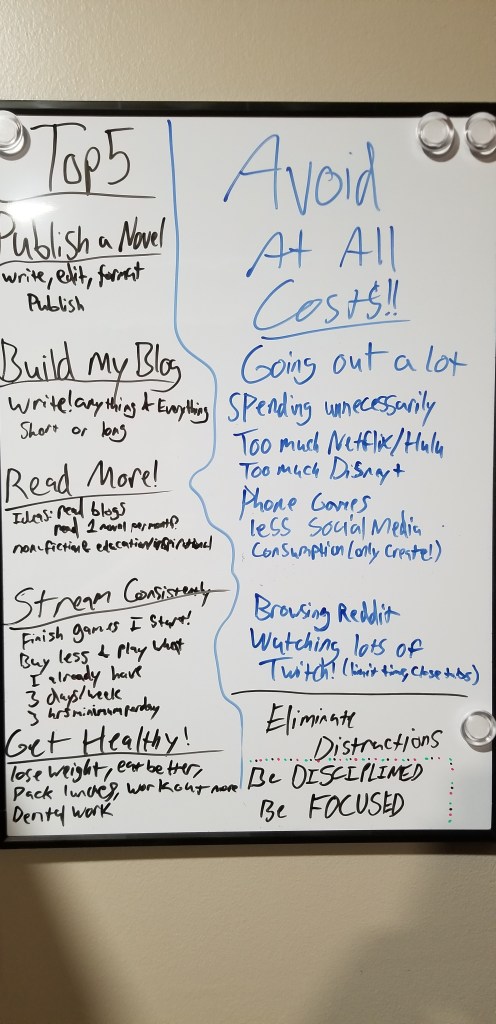 Top 5
Publish a Novel
write, edit, format
Publish
Build My Blog
Write! anything & Everything
Short or long
Read More!
Ideas: read blogs
read 1 novel per month?
nonfiction & education/inspirational
Stream Consistently
Finish games I start!
Buy less & play what
I already have
3 days/week
3 hrs minimum per day
Get Healthy!
lose weight, eat better,
Pack lunches, workout more
Dental work
Avoid
At All
Costs!!
Going out a lot
Spending unnecessarily
Too much Netflix/Hulu
Too much Disney+
Phone Games
less Social Media
Consumption (only create!)
Browsing Reddit
Watching lots of
Twitch! (limit time, close tabs)
Eliminate
Distractions
Be DISCIPLINED
Be FOCUSED